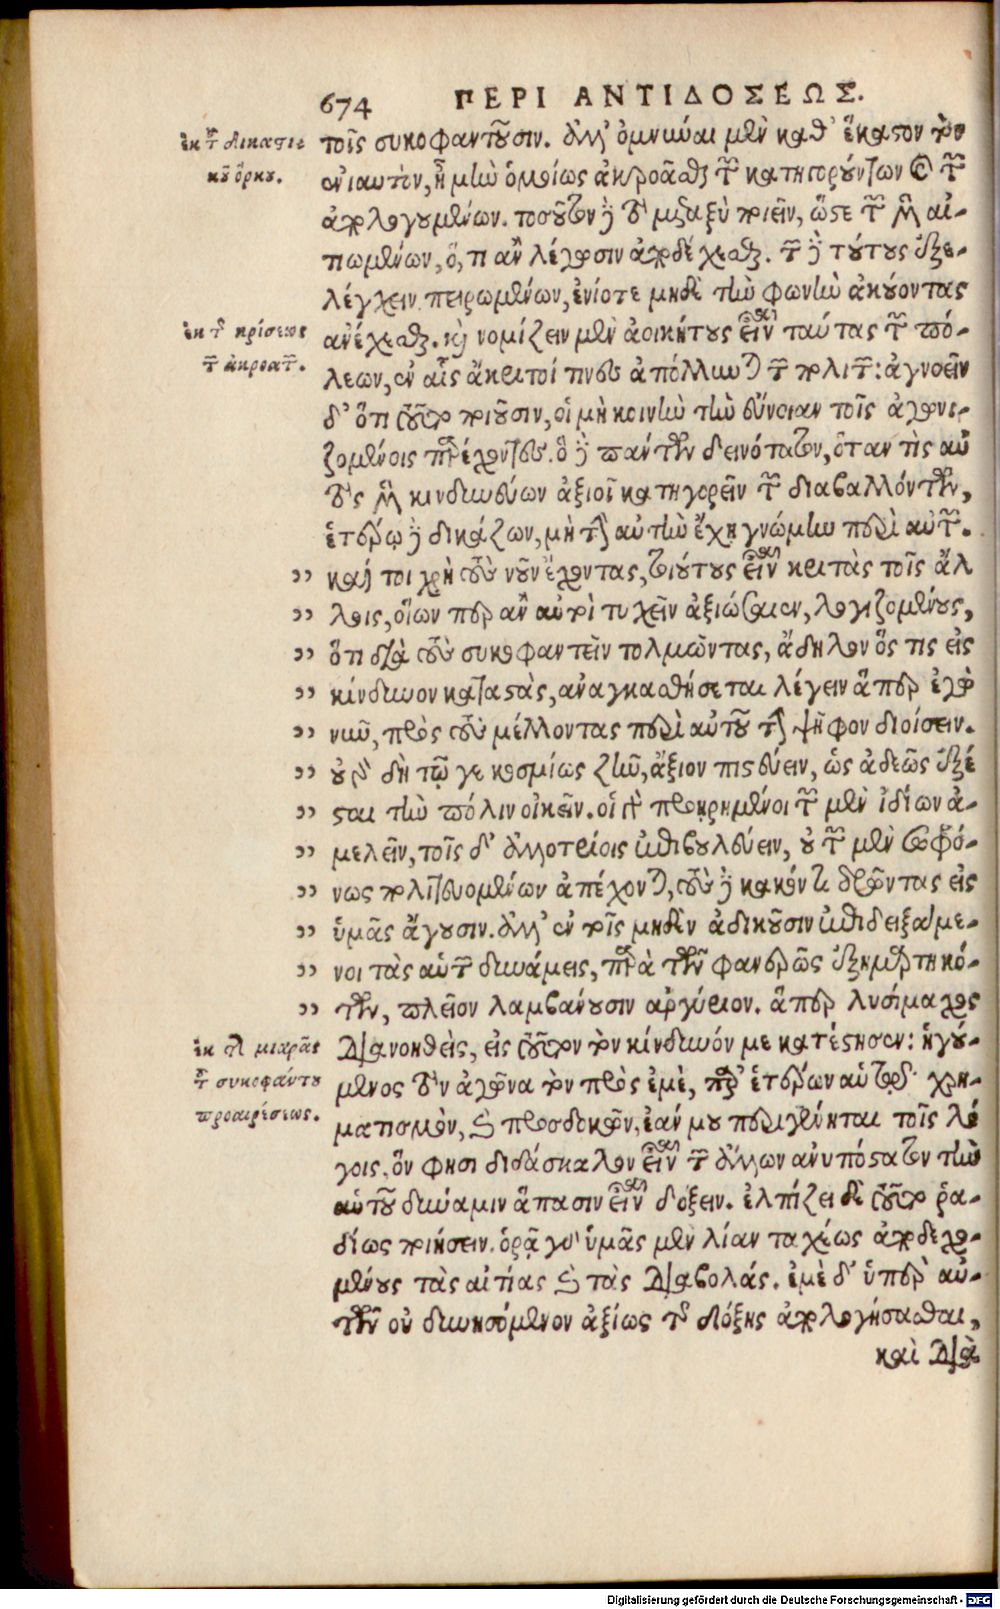 674 ΠΕΡΙ ΑΝΤΙΔΟΣΕΩΣ.
ἐκ τοῦ δικαστι-
κοῦ ὅρκου.
τοῖς συκοφαντοῦσιν. ἀλλ' ὀμνύναι μὲν καθ' ἕκαστον τὸν
ἐνιαυτὸν, ἦ μὴν ὁμοίως ἀκροᾶσθαι τῶν κατηγορούντων καὶ τῶν
ἀπολογουμένων. τοσοῦτον δὲ τὸ μεταξὺ ποιεῖν, ὥστε τῶν μὲν αἰ-
τιωμένων, ὅ, τι ἂν λέγωσιν ἀποδέχεσθαι. τῶν δὲ τούτους ἐξε-
λέγχειν πειρωμένων, ἐνίοτε μηδὲ τὴν φωνὴν ἀκούοντας
ἐκ τῆς κρίσεως
τῶν ἀκροατῶν.
ἀνέχεσθαι. καὶ νομίζειν μὲν ἀοικήτους εἶναι ταύτας τῶν πό-
λεων, ἐν αἷς ἄκριτοί τινες ἀπόλλυνται τῶν πολιτῶν: ἀγνοεῖν
δ' ὅτι τοῦτο ποιοῦσιν, οἱ μὴ κοινὴν τὴν εὔνοιαν τοῖς ἀγωνι-
ζομένοις παρέχοντες. ὃ δὲ πάντων δεινότατον, ὅταν τὶς αὐ
τὸς μὲν κινδυνεύων ἀξιοῖ κατηγορεῖν τῶν διαβαλλόντων,
ἑτέρῳ δὲ δικάζων, μὴ τὴν αὐτὴν ἔχῃ γνώμην περὶ αὐτῶν.
,, καί τοι χρὴ τοὺς νοῦν ἔχοντας, τοιούτους εἶναι κριτὰς τοῖς ἄλ
,, λοις, οἵων περ ἂν αὐτοὶ τυχεῖν ἀξιώσαιεν, λογιζομένους,
,, ὅτι διὰ τοὺς συκοφαντεῖν τολμῶντας, ἄδηλον ὅς τις εἰς
,, κίνδυνον καταστὰς, ἀναγκασθήσεται λέγειν ἅπερ ἐγὼ
,, νῦν, πρὸς τοὺς μέλλοντας περὶ αὐτοῦ τὴν ψῆφον διοίσειν.
,, οὐ γὰρ δὴ τῷ γε κοσμίως ζῆν, ἄξιον πιστεύειν, ὡς ἀδεῶς ἐξέ
,, σται τὴν πόλιν οἰκεῖν. οἱ γὰρ προῃρημένοι τῶν μὲν ἰδίων ἀ-
,, μελεῖν, τοῖς δ' ἀλλοτρίοις ἐπιβουλεύειν, οὐ τῶν μὲν σωφρό-
,, νως πολιτευομένων ἀπέχονται, τοὺς δὲ κακόν τι δρῶντας εἰς
,, ὑμᾶς ἄγουσιν. ἀλλ' ἐν τοῖς μηδὲν ἀδικοῦσιν ἐπιδειξάμε-
,, νοι τὰς αὑτῶν δυνάμεις, παρὰ τῶν φανερῶς ἐξημαρτηκό-
,, των, πλεῖον λαμβάνουσιν ἀργύριον. ἅπερ λυσίμαχος
ἐκ τῆς μιαρᾶς
τοῦ συκοφάντου
προαιρέσεως.
διανοηθεὶς, εἰς τοῦτον τὸν κίνδυνόν με κατέστησεν: ἡγού-
μενος τὸν ἀγῶνα τὸν πρὸς ἐμὲ, παρ' ἑτέρων αὑτῷ χρη-
ματισμὸν, καὶ προσδοκῶν, ἐάν μου περιγένηται τοῖς λό
γοις, ὅν φησι διδάσκαλον εἶναι τῶν ἄλλων ἀνυπόστατον τὴν
αὑτοῦ δύναμιν ἅπασιν εἶναι δόξειν. ἐλπίζει δὲ τοῦτο ῥα-
δίως ποιήσειν. ὁρᾷ γὰρ ὑμᾶς μὲν λίαν ταχέως ἀποδεχο-
μένους τὰς αἰτίας καὶ τὰς διαβολάς. ἐμὲ δ' ὑπὲρ αὐ-
τῶν οὐ δυνησόμενον ἀξίως τῆς δόξης ἀπολογήσασθαι,
καὶ διὰ
Digitalisierung gefördert durch die Deutsche Forschungsgemeinschaft - DFG